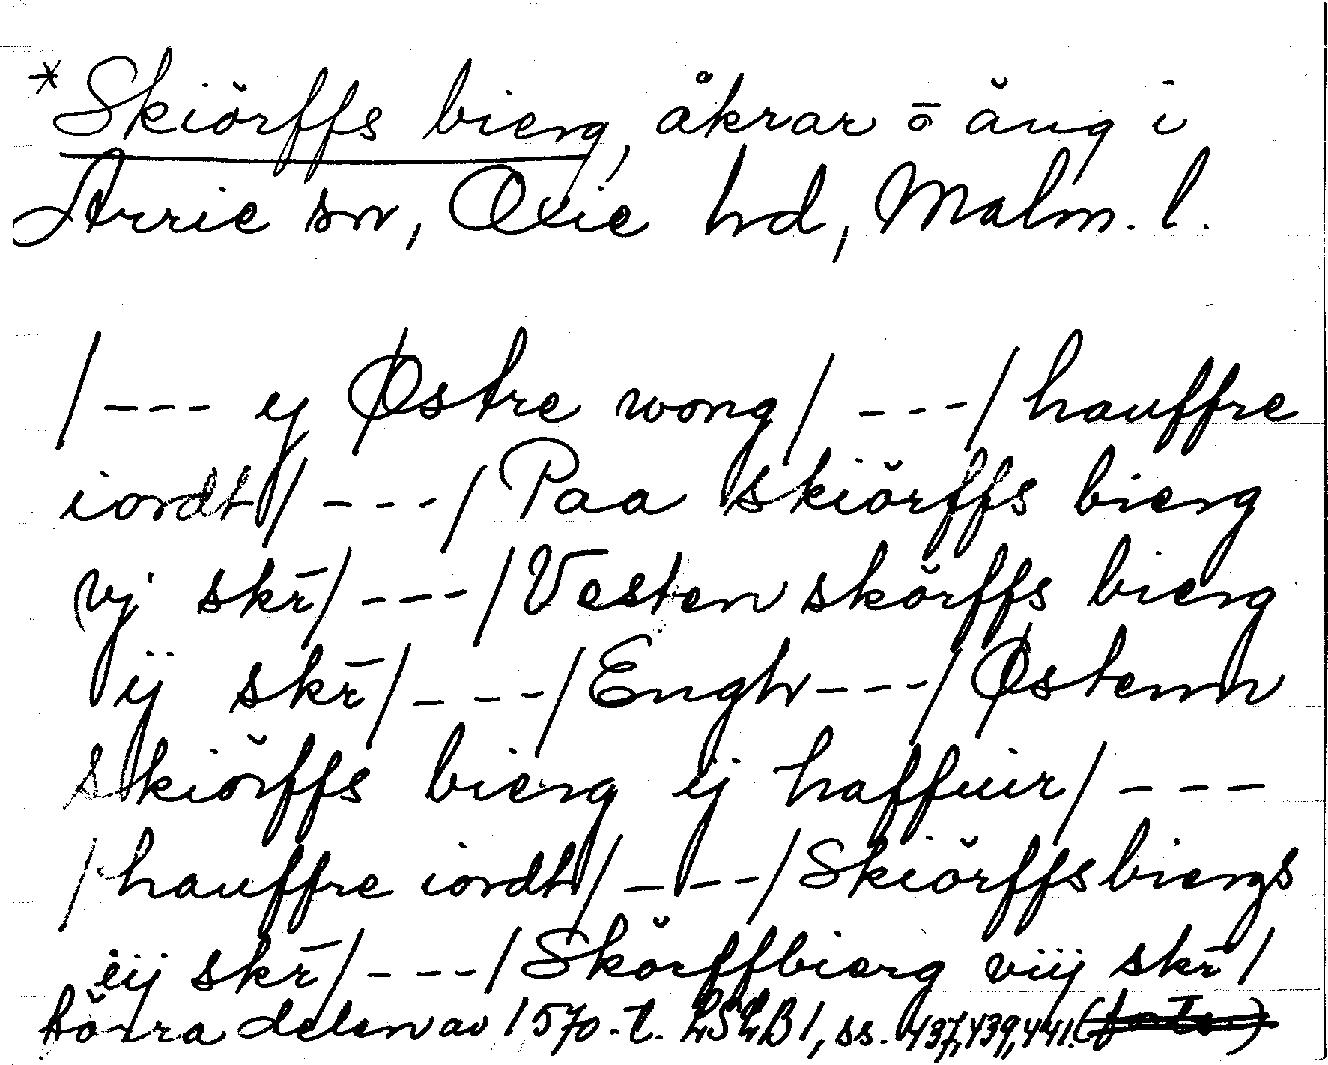 *Skiörffs bierg, åkrar ō äng i
Arrie sn, Oxie hd, Malm. l.
/--- ij Østre wong/ ---/hauffre
iordt/ ---/Paa skiörffs bierg
vj skr̄/ ---/Vesten skörffs bierg
ij skr̄/ ---/Engh ---/Østenn
skiörffs bierg ij haffuir/ ---
/hauffre iordt/ ---/Skiörffsbiergs
iij skr̄/ ---/Skörffbierg viij skr̄/
Södra delen av 1570-t. LSLB 1, ss. 437, 439, 441.